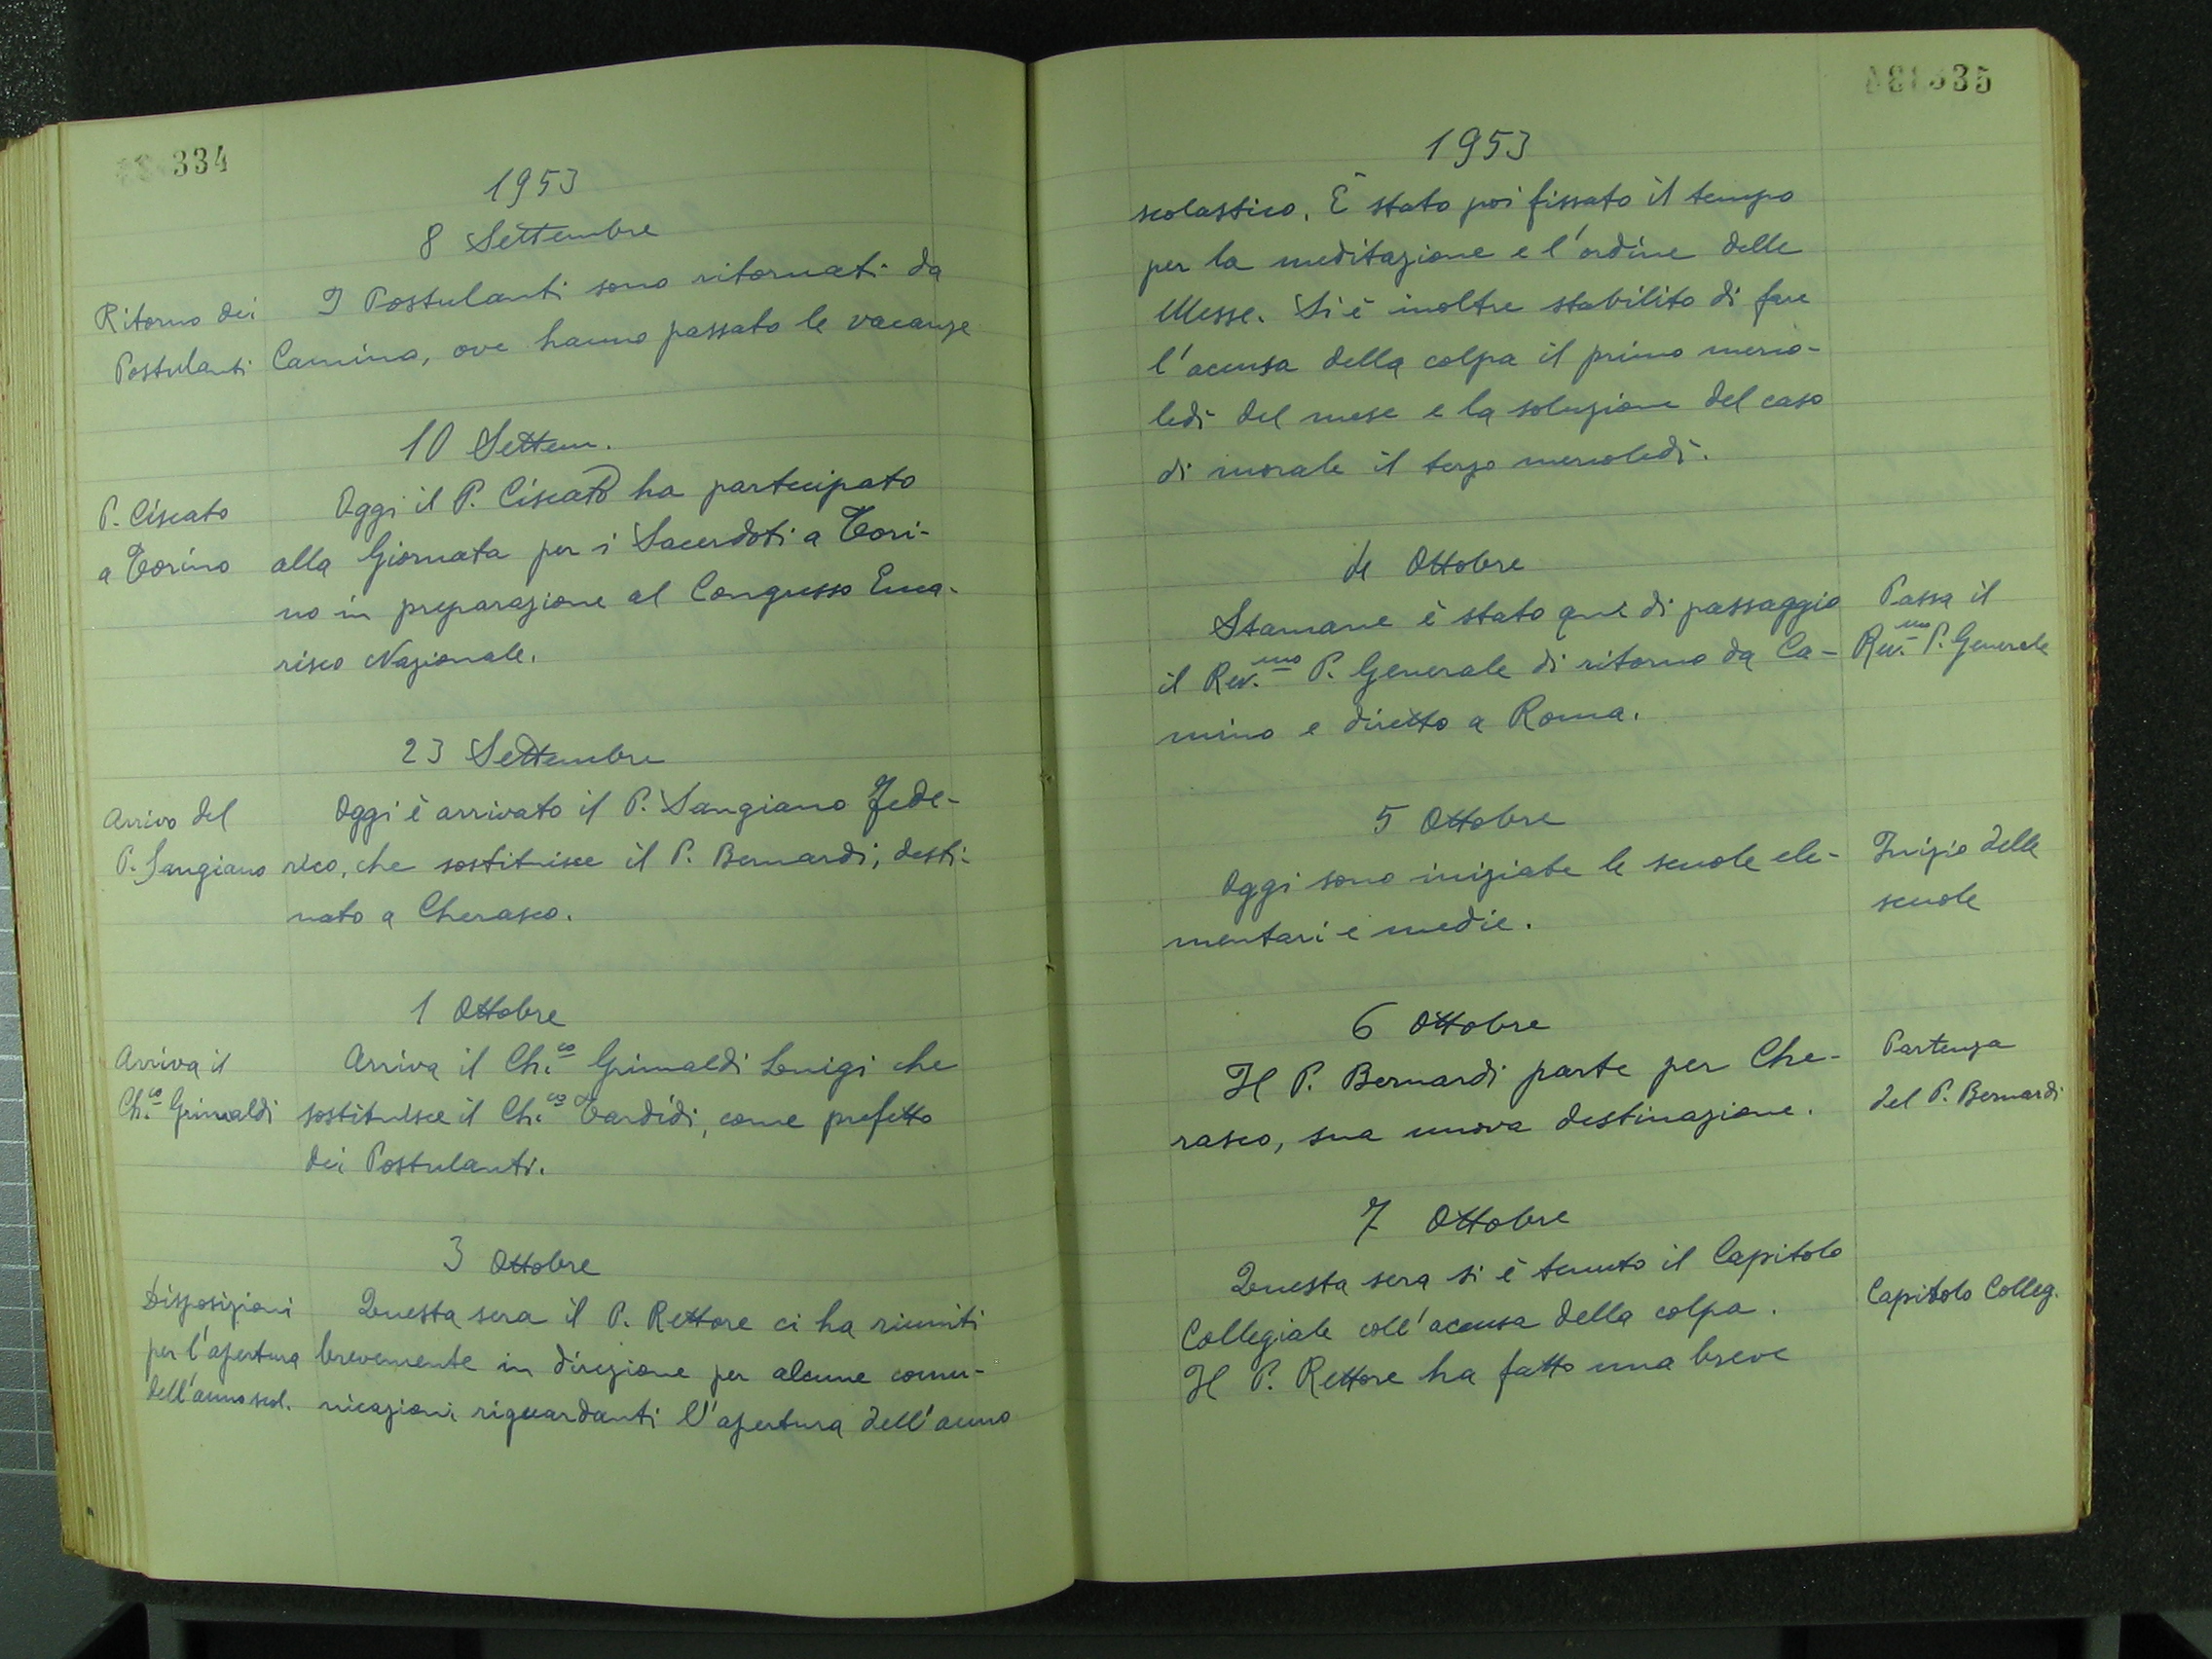 334
1953
8 Settembre
Ritorno dei
Postulanti
I Postulanti sono ritornati da
Camino, ove hanno passato le vacanze
10 Settem.
P. Ciscato
a Torino
Oggi il P. Ciscato ha partecipato
alla Giornata per i Sacerdoti a Tori-
no in preparazione al Congresso Euca-
risco Nazionale.
23 Settembre
Arrivo del
P. Sangiano
Oggi è arrivato il P. Sangiano Fede-
rico, che sostituisce il P. Bernardi, desti-
nato a Cherasco.
1 Ottobre
Arriva il
Ch.co Grimaldi
Arriva il Ch.co Grimaldi Luigi che
sostituisce il Ch.co Tardidi, come prefetto
dei Postulanti.
3 Ottobre
Disposizioni
per l'apertura
dell'anno scol.
Questa sera il P. Rettore ci ha riuniti
brevemente in direzione per alcune comu-
nicazioni riguardanti l'apertura dell'anno
335
1953
scolastico. È stato poi fissato il tempo
per la meditazione e l'ordine delle
Messe. Si è inoltre stabilito di fare
l'accusa della colpa il primo merco-
ledì del mese e la soluzione del caso
di morale il terzo mercoledì.
4 Ottobre
Stamane è stato qui di passaggio
il Rev.mo P. Generale di ritorno da Ca-
mino e diretto a Roma.
Passa il
Rev.mo P. Generale
5 Ottobre
Oggi sono iniziate le scuole ele-
mentari e medie.
Inizio delle
scuole
6 Ottobre
Il P. Bernardi parte per Che-
rasco, sua nuova destinazione.
Partenza
del P. Bernardi
7 Ottobre
Questa sera si è tenuto il Capitolo
Collegiale coll'accusa della colpa.
Il P. Rettore ha fatto una breve
Capitolo Colleg.